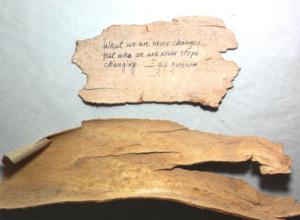 What we are never changes,
but who we are never stops
changing. - Gil Grissom